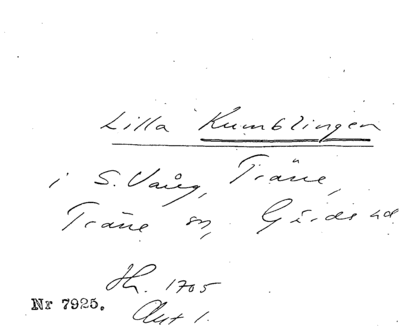 Lilla Kumblingen
i S. Vång, Träne,
Träne sn, Gärds hd
Hh. 1705
Nr 7925. Akt 1.